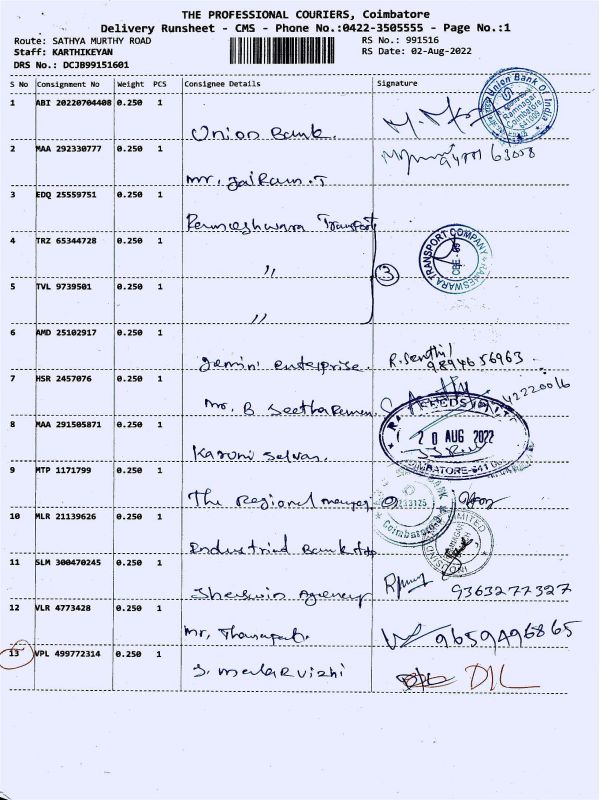 THE PROFESSIONAL COURIERS, Coimbatore
Delivery Runsheet - CMS - Phone No.:0422-3505555 - Page No.:1
Route: SATHYA MURTHY ROAD RS No.: 991516
Staff: KARTHIKEYAN RS Date: 02-Aug-2022
DRS No.: DCJB99151601
S No Consignment No Weight PCS Consignee Details Signature
1 ABI 20220704408 0.250 1
Union Bank.
Union Bank Of India Ramnagar Coimbatore
2 MAA 292330777 0.250 1
63058
Mr. Jai Ram.T
3 EDQ 25559751 0.250 1
Rameshwara Transport
4 TRZ 65344728 0.250 1
RAMESWARA TRANSPORT COMPANY CBE
〃
3
5 TVL 9739501 0.250 1
〃
6 AMD 25102917 0.250 1
Gemini enterprise. R. Senthil
9894656963
7 HSR 2457076 0.250 1
Mr. B Seetha Raman.
8 MAA 291505871 0.250 1
20 AUG 2022
COIMBATORE-641
Karuni Selvan.
9 MTP 1171799 0.250 1
The Regional manager
Coimbatore
10 MLR 21139626 0.250 1
Industrial Bank
11 SLM 300470245 0.250 1
Agency 9363277327
12 VLR 4773428 0.250 1
Mr, 9659496865
13 VPL 499772314 0.250 1
S. Malarvizhi D/L